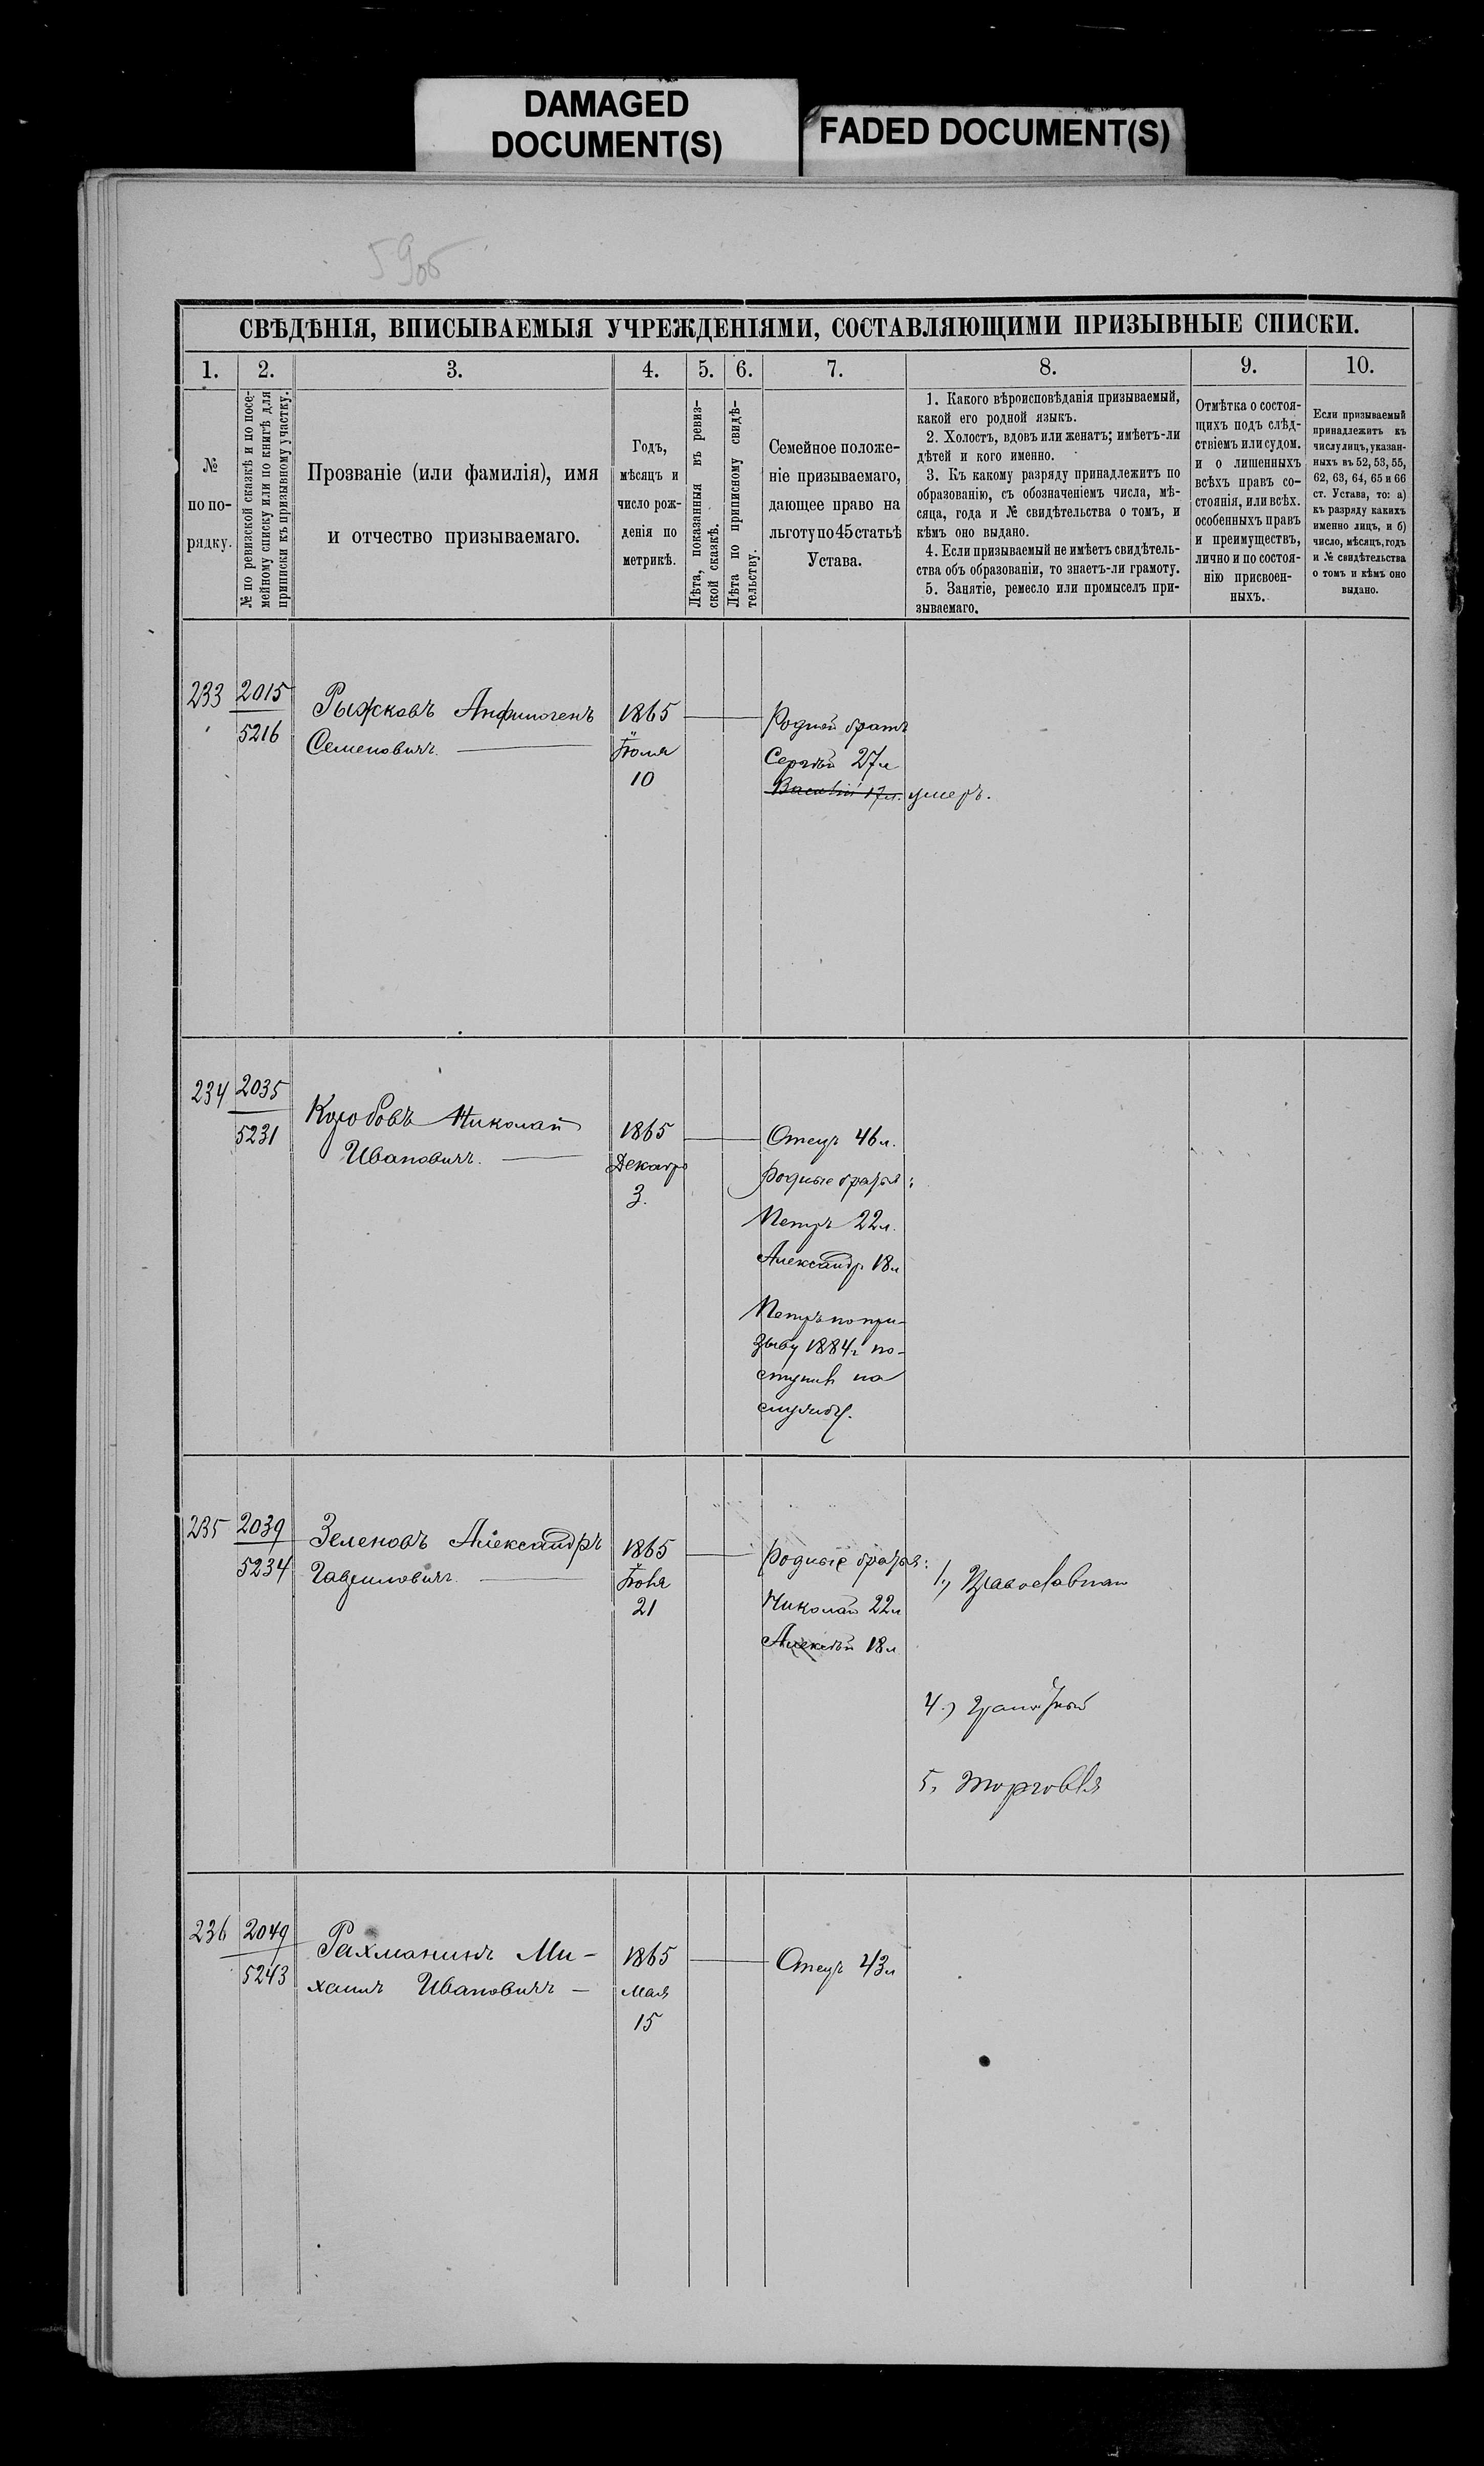 DAMAGED
DOCUMENT(S)
FADED DOCUMENT(S)
59об
СВѢДѢНІЯ, ВПИСЫВАЕМЫЯ УЧРЕЖДЕНІЯМИ, СОСТАВЛЯЮЩИМИ ПРИЗЫВНЫЕ СПИСКИ.
1. 2. 3. 4. 5. 6. 7. 8. 9. 10.
№
по по-
рядку.
№ по ревизской сказкѣ и по посе-
мейному списку или по книгѣ для
приписки къ призывному участку.
Прозваніе (или фамилія), имя
и отчество призываемаго.
Годъ,
мѣсяцъ и
число рож-
денія по
метрикѣ.
Лѣта, показанныя въ ревиз-
ской сказкѣ.
Лѣта по приписному свидѣ-
тельству.
Семейное положе-
ніе призываемаго,
дающее право на
льготу по 45 статьѣ
Устава.
1. Какого вѣроисповѣданія призываемый,
какой его родной языкъ.
2. Холостъ, вдовъ или женатъ; имѣетъ-ли
дѣтей и кого именно.
3. Къ какому разряду принадлежитъ по
образованію, съ обозначеніемъ числа, мѣ-
сяца, года и № свидѣтельства о томъ, и
кѣмъ оно выдано.
4. Если призываемый не имѣетъ свидѣтель-
ства объ образованіи, то знаетъ-ли грамоту.
5. Занятіе, ремесло или промыселъ при-
зываемаго.
Отмѣтка о состоя-
щихъ подъ слѣд-
ствіемъ или судом.
и о лишенныхъ
всѣхъ правъ со-
стоянія, или всѣх.
особенныхъ правъ
и преимуществъ,
лично и по состоя-
нію присвоен-
ныхъ.
Если призываемый
принадлежитъ къ
числу лицъ, указан-
ныхъ въ 52, 53, 55,
62, 63, 64, 65 и 66
ст. Устава, то: а)
къ разряду какихъ
именно лицъ, и б)
число, мѣсяцъ, годъ
и № свидѣтельства
о томъ и кѣмъ оно
выдано.
233 2015
5216
Рыжковъ Анфиногенъ
Семеновичъ.
1865
Іюля
10
Родной братъ
Сергѣй 27л
Василій 17л. умеръ.
234 2035
5231
Коробовъ Николай
Ивановичъ.
1865
Декабр
3.
Отецъ 46л.
родные братья:
Петръ 22л.
Александр. 18л
Петръ по при-
зыву 1884г по-
ступилъ на
службу.
235 2039
5234
Зеленовъ Александръ
Гавриловичъ.
1865
Іюня
21
родные братья:
Николай 22л
Алексѣй 18л
1.) Православнаго
4.) Грамотный
5. торговля
236 2049
5243
Рахманинъ Ми-
хаилъ Ивановичъ
1865
Мая
15
Отецъ 43л